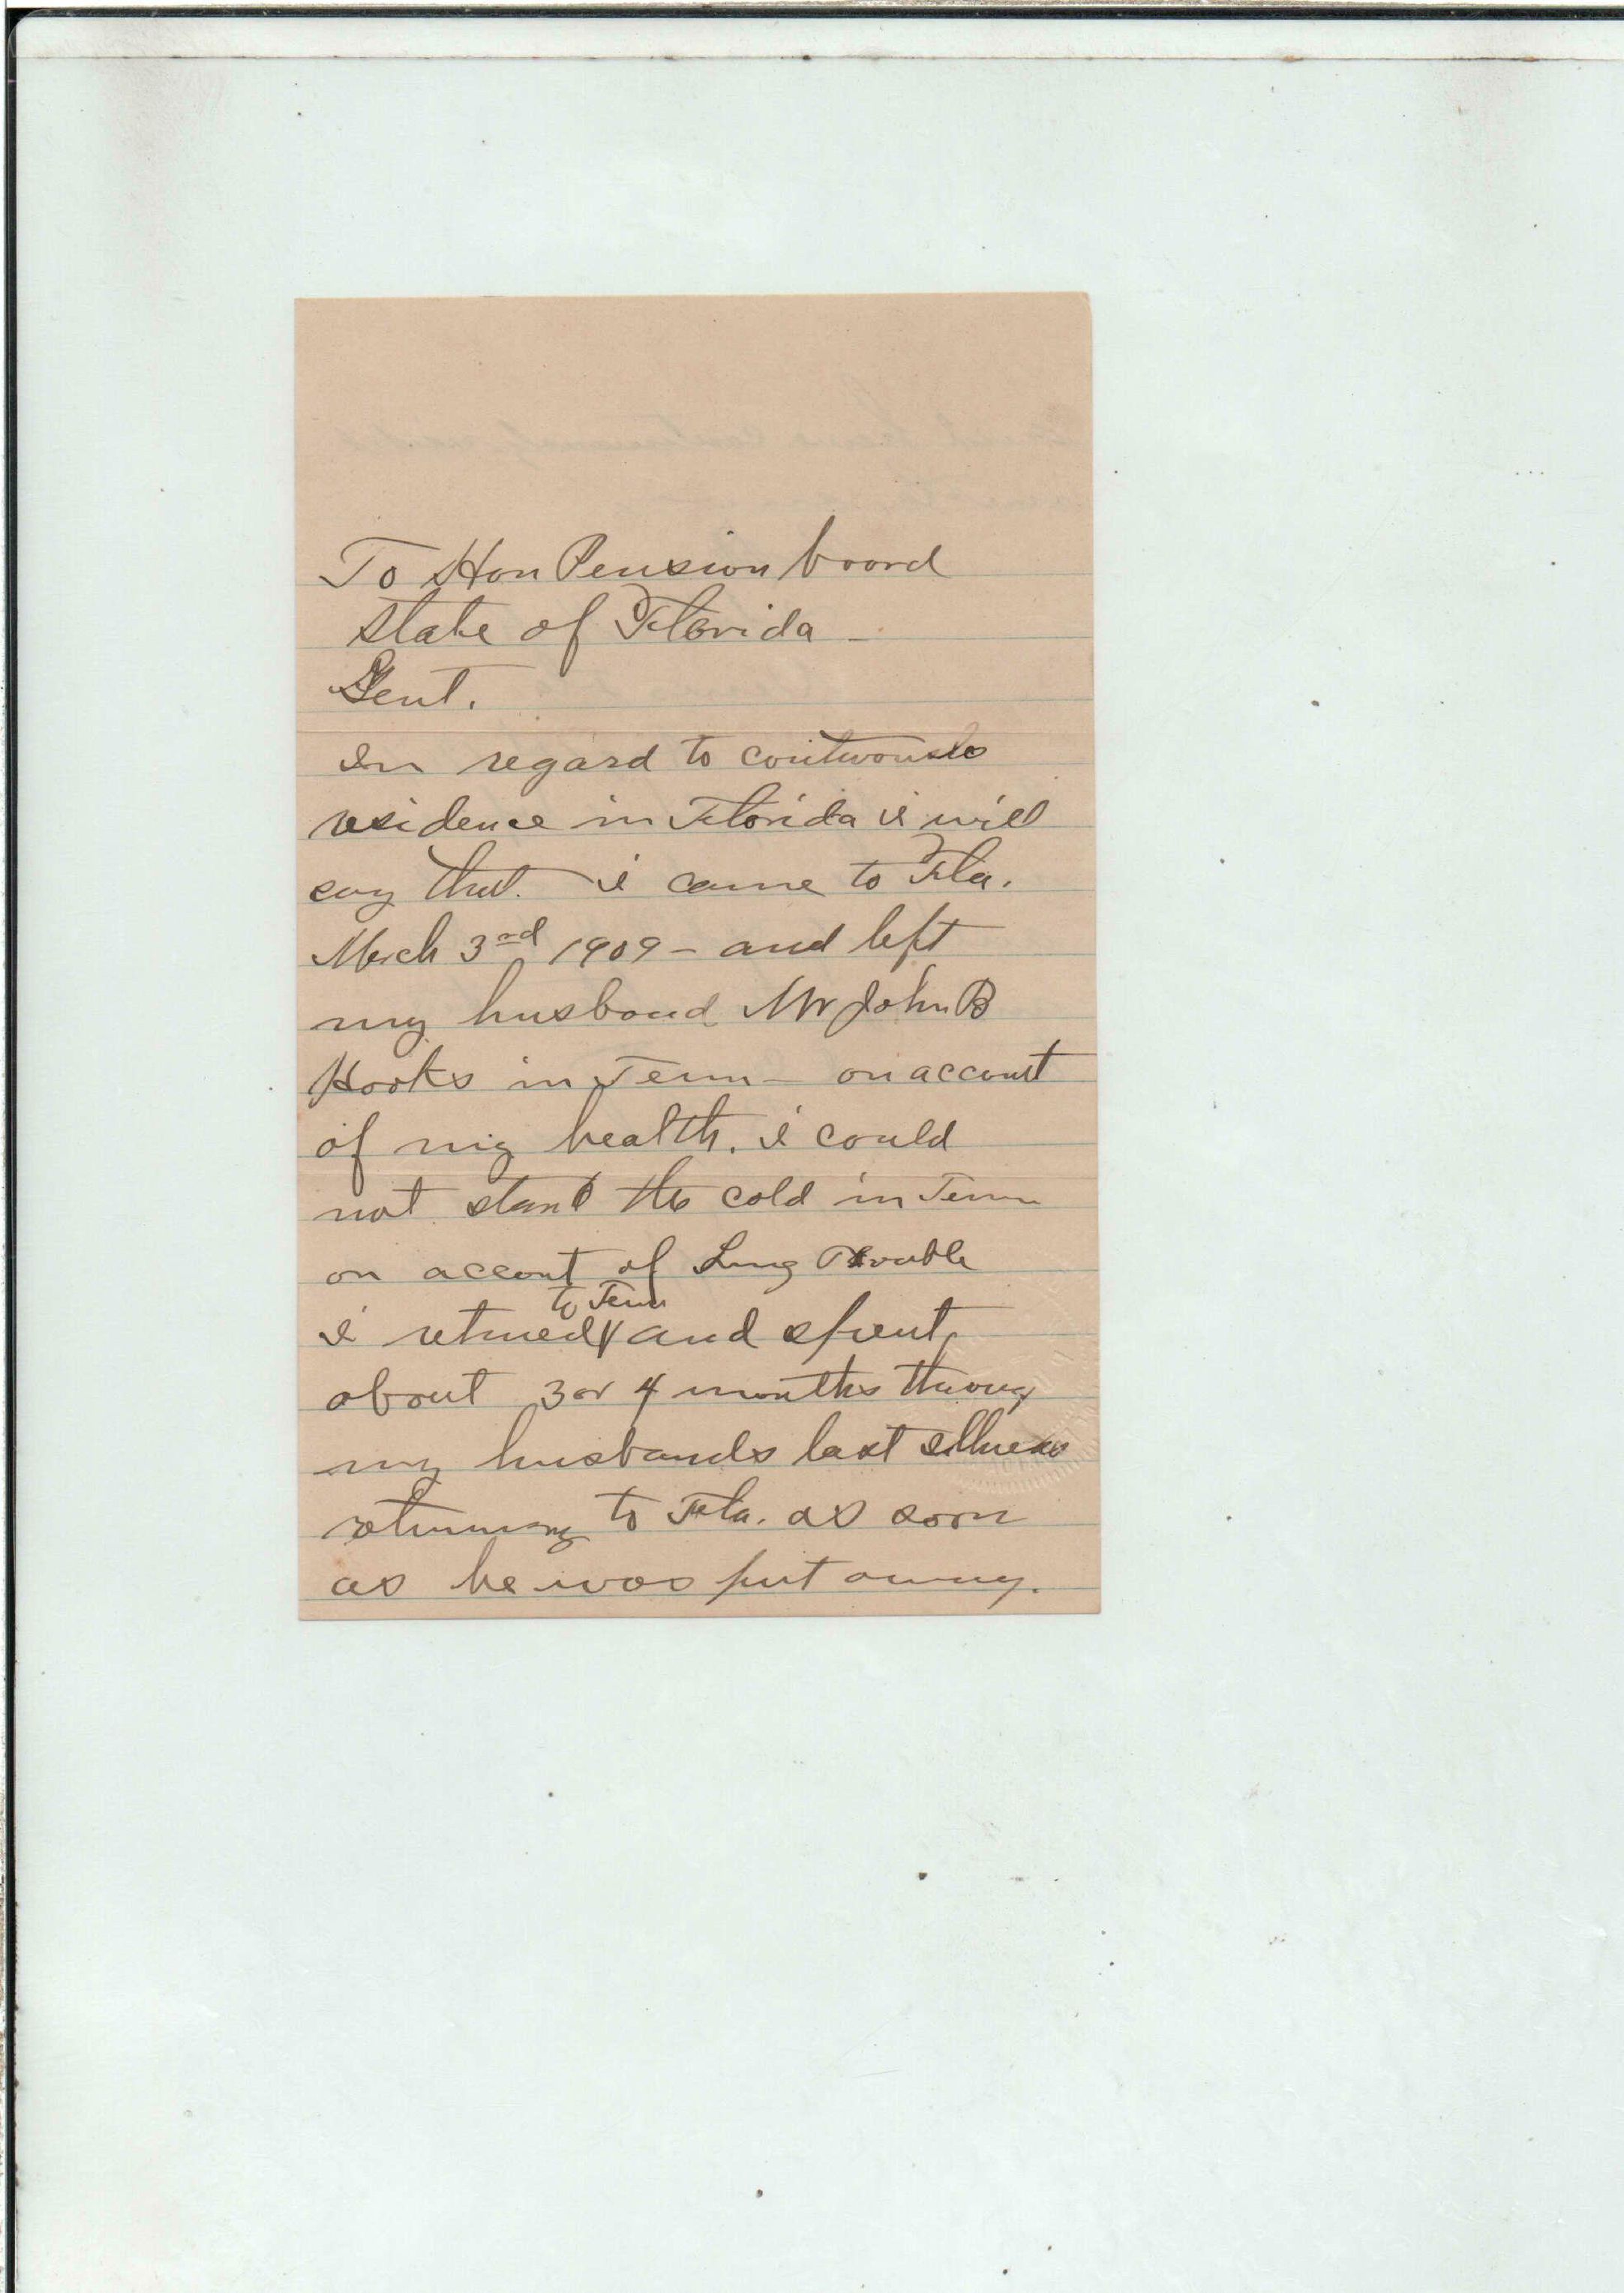 To Hon Pension board
State of Florida -
Gent.
In regard to
residence in Florida i will
say that. i came to Fla.
March 3rd 1909 - and left
my husband Mr John B
Hooks in Tenn - on account
of my health. i could
not stand the cold in Tenn
on accont of Lung Trouble
to Tenn
i retuned and spent
about 3 or 4 months throug
my husbands last illness
returning to Fla. as soon
as he was put away.